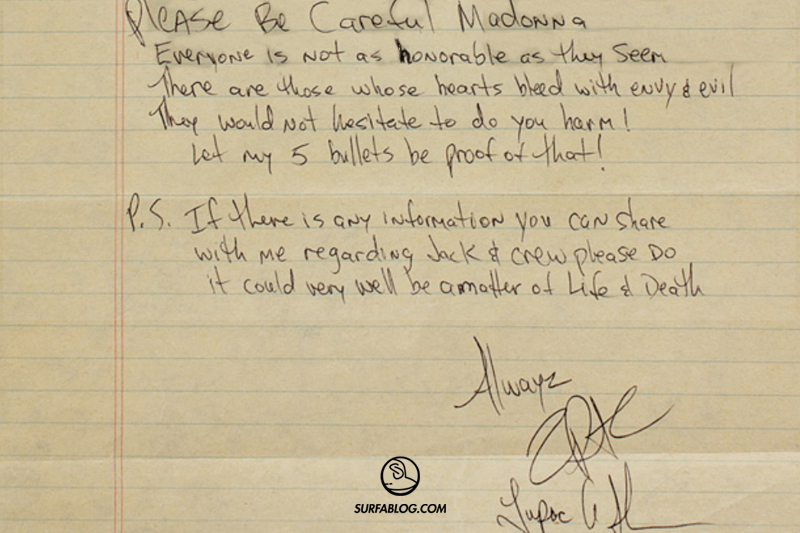 Please Be Careful Madonna
Everyone is not as honorable as they seem
There are those whose hearts bleed with envy & evil
They would not hesitate to do you harm!
Let my 5 bullets be proof of that!
P.S. If there is any information you can share
with me regarding Jack & crew please DO
it could very well be a matter of Life & Death
Always
Tupac
SL
SURFABLOG.COM